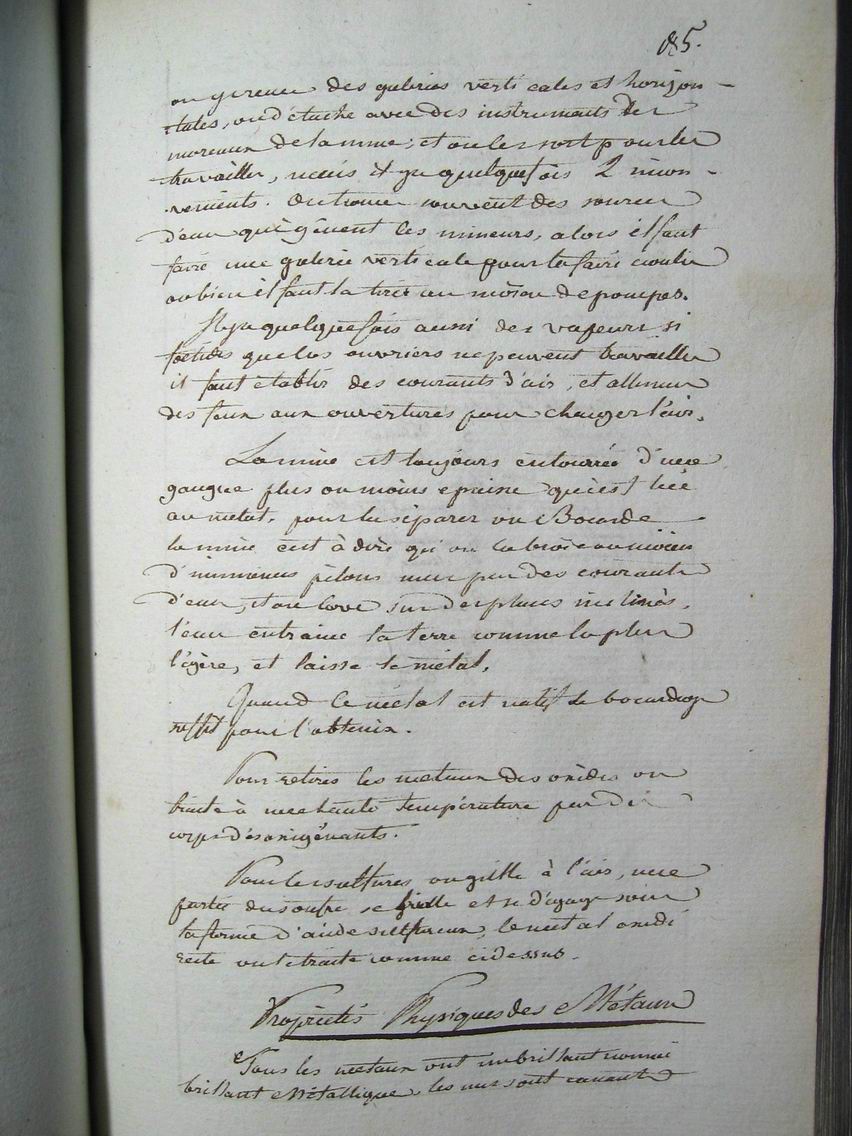 85.
on y creuse des galeries verticales et horizon-
tales, on détache avec des instruments des
morceaux de la mine, et on les sort pour les
travailler, mais il y a quelquefois 2 incon-
venients. On trouve souvent des sources
d'eau qui gênent les mineurs, alors il faut
faire une galerie verticale pour la faire couler
ou bien il faut la tirer au moien de pompes.
Il y a quelquefois aussi des vapeurs si
fœtides que les ouvriers ne peuvent travailler
il faut établir des courants d'air, et allumer
des feux aux ouvertures pour changer l'air.
La mine est toujours entourée d'une
gangue plus ou moins epaisse qui est liée
au metal. pour les séparer on Bocarde
la mine c'est à dire qu'on la broie au moien
d'immenses pilons mus par des courants
d'eau, et on lave sur des plans inclinés.
l'eau entraine la terre comme la plus
légère, et laisse le métal.
Quand le métal est natif le bocardage
suffit pour l'obtenir.
Pour retirer les metaux des oxides on
traite à une haute température par des
corps désoxigénants.
Pour les sulfures on grille à l'air, une
partie du soufre se brule et se dégage sous
la forme d'acide sulfureux, le metal oxidé
reste on le traite comme ci dessus.
Propriétés Physiques des Métaux
Tous les metaux ont un brillant nommé
brillant Métallique, les uns sont cassants